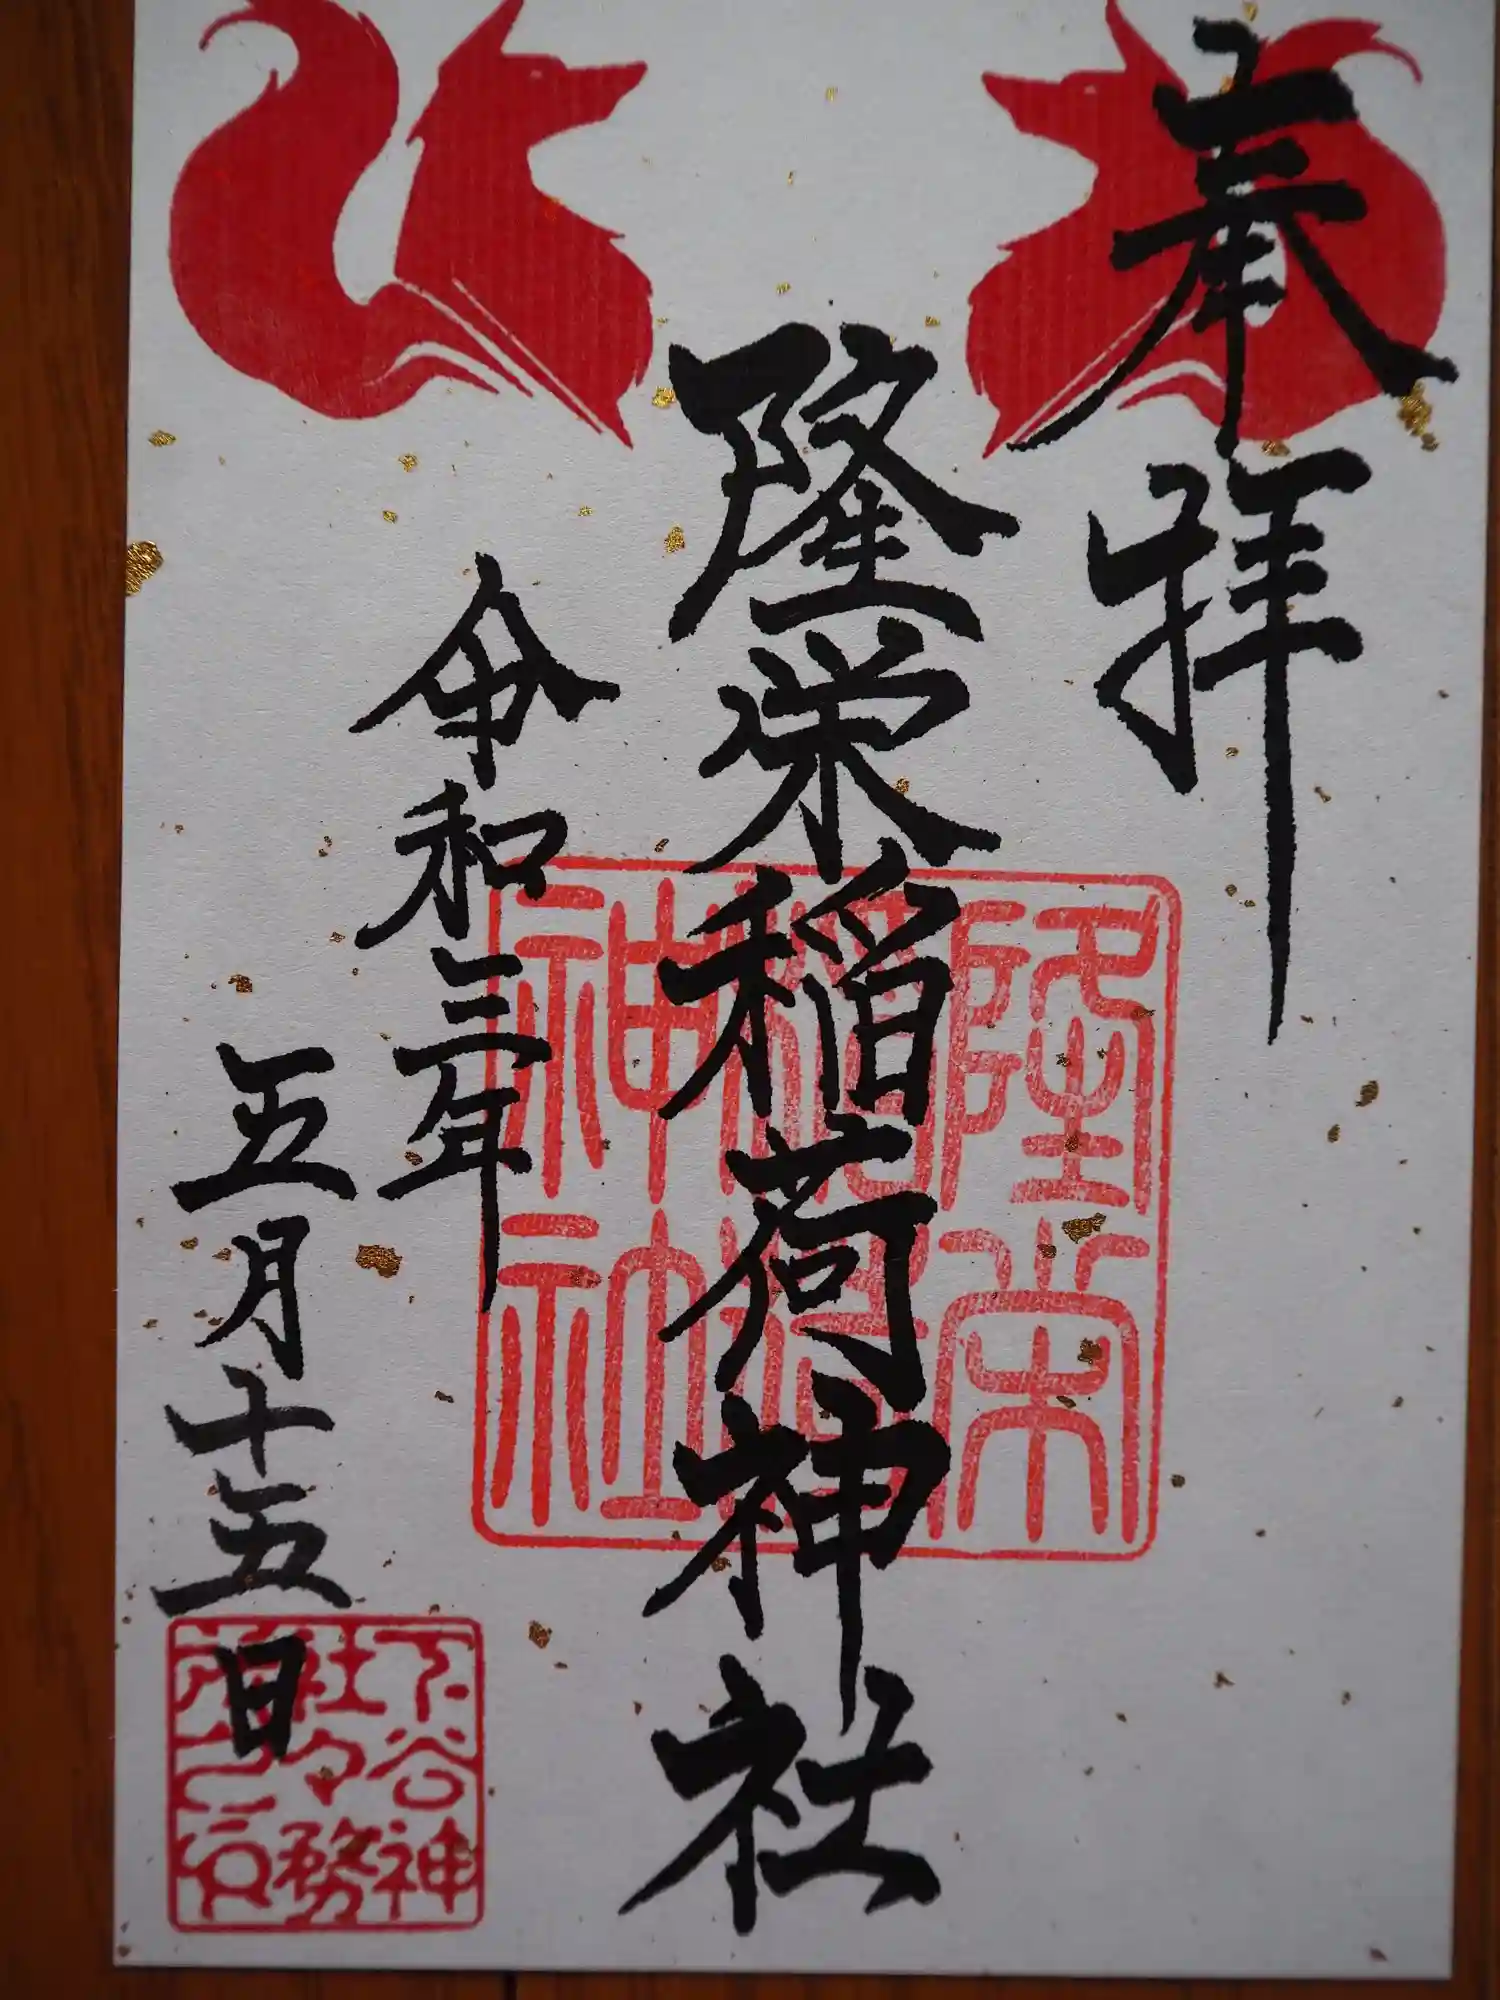 奉拝
隆栄稲荷神社
令和三年
五月十五日
隆栄
稲荷
神社
下谷神
社々務